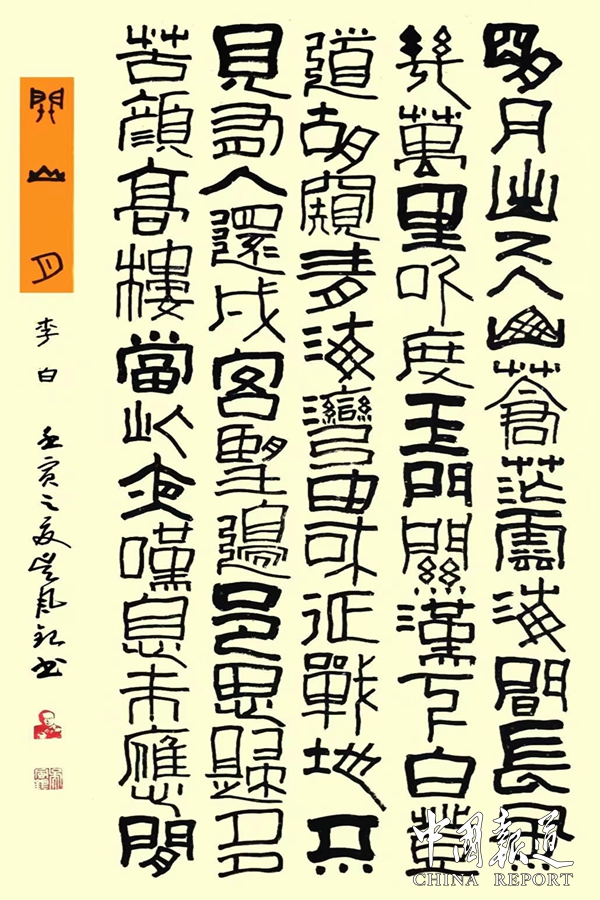 明月出天山蒼茫雲海間長風
幾萬里吹度玉門關漢下白登
道胡窺青海灣由來征戰地不
見有人還戍客望邊邑思歸多
苦顏高樓當此夜嘆息未應閒
關山月
李白 壬寅之夏 書
中國報道
CHINA REPORT